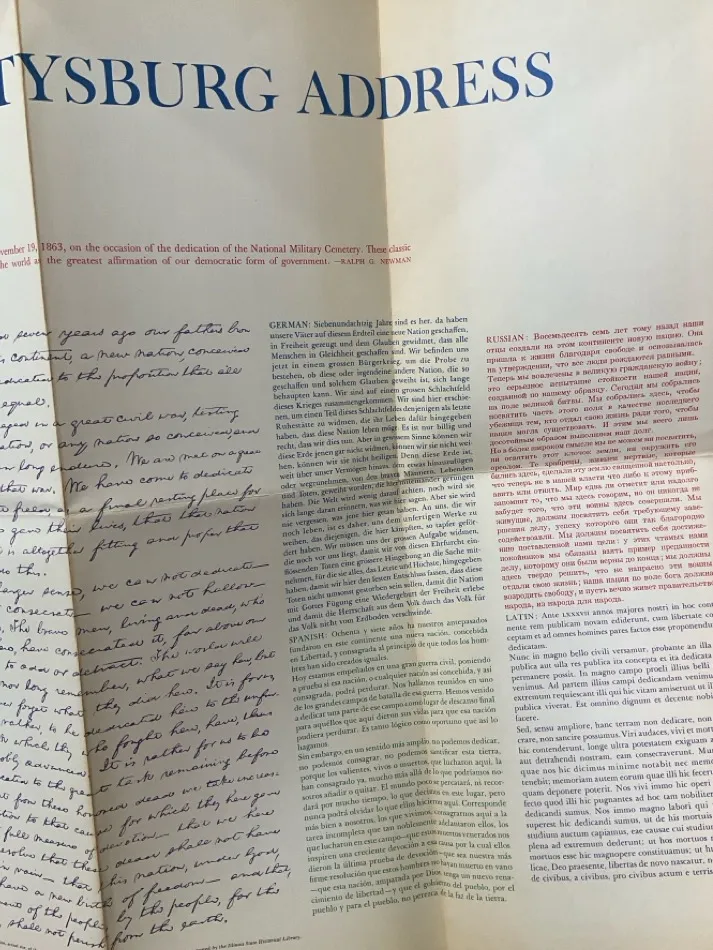 TYSBURG ADDRESS
vember 19, 1863, on the occasion of the dedication of the National Military Cemetery. These classic
he world as the greatest affirmation of our democratic form of government. —RALPH G. NEWMAN
seven years ago our fathers brou
continent, a new nation, conceived
dedicated to the proposition that all
equal.
aged in a great civil war, testing
nation, or any nation so conceived and
long endure. We are met on a great
that war. We have come to dedicate
field, as a final resting place for
gave their lives, that that nation
is altogether fitting and proper that
do this.
larger sense, we can not dedicate—
consecrate—we can not hallow—
The brave men, living and dead, who
have consecrated it, far above our
to add or detract. The world will
nor long remember, what we say here, but
forget what they did here. It is for us,
rather, to be dedicated here to the unfin-
which they who fought here, have, thus
nobly advanced. It is rather for us to be
to the great task remaining before
from these honored dead we take increas-
to that cause for which they here gave
full measure of devotion—that we here
resolve that these dead shall not have
in vain—that this nation, under God,
have a new birth of freedom—and that,
of the people, by the people, for the
shall not perish from the earth.
by the Illinois State Historical Library.
GERMAN: Siebenundachtzig Jahre sind es her, da haben
unsere Väter auf diesem Erdteil eine neue Nation geschaffen,
in Freiheit gezeugt und dem Glauben gewidmet, dass alle
Menschen in Gleichheit geschaffen sind. Wir befinden uns
jetzt in einem grossen Bürgerkrieg, um die Probe zu
bestehen, ob diese oder irgendeine andere Nation, die so
geschaffen und solchem Glauben geweiht ist, sich lange
behaupten kann. Wir sind auf einem grossen Schlachtfeld
dieses Krieges zusammengekommen. Wir sind hier erschie-
nen, um einen Teil dieses Schlachtfeldes denjenigen als letzte
Ruhestätte zu widmen, die ihr Leben dafür hingegeben
haben, dass diese Nation leben möge. Es ist nur billig und
recht, dass wir dies tun. Aber in gewissem Sinne können wir
diese Erde jenen gar nicht widmen, können wir sie nicht wei-
hen, können wir sie nicht heiligen. Denn diese Erde ist,
weit über unser Vermögen hinaus, dem etwas hinzuzufügen
oder wegzunehmen, von den braven Männern, Lebenden
und Toten, geweiht worden, die hier miteinander gerungen
haben. Die Welt wird wenig darauf achten, noch wird sie
sich lange daran erinnern, was wir hier sagen. Aber sie wird
nie vergessen, was jene hier getan haben. An uns, die wir
noch leben, ist es daher, uns dem unfertigen Werke zu
weihen, das diejenigen, die hier kämpften, so tapfer geför-
dert haben. Wir müssen uns der grossen Aufgabe widmen,
die noch vor uns liegt, damit wir von diesen Ehrfurcht ein-
flössenden Toten eine grössere Hingebung an die Sache mit-
nehmen, für die sie alles, das Letzte und Höchste, hingegeben
haben, damit wir hier den festen Entschluss fassen, dass diese
Toten nicht umsonst gestorben sein sollen, damit die Nation
mit Gottes Fügung eine Wiedergeburt der Freiheit erlebe
und damit die Herrschaft aus dem Volk durch das Volk für
das Volk nicht vom Erdboden verschwinde.
SPANISH: Ochenta y siete años ha nuestros antepasados
fundaron en este continente una nueva nación, concebida
en Libertad, y consagrada al principio de que todos los hom-
bres han sido creados iguales.
Hoy estamos empeñados en una gran guerra civil, poniendo
a prueba si esa nación, o cualquier nación así concebida, y así
consagrada, podrá perdurar. Nos hallamos reunidos en uno
de los grandes campos de batalla de esa guerra. Hemos venido
a dedicar una parte de ese campo como lugar de descanso final
para aquellos que aquí dieron sus vidas para que esa nación
pudiera perdurar. Es tanto lógico como oportuno que así lo
hagamos.
Sin embargo, en un sentido más amplio, no podemos dedicar,
no podemos consagrar, no podemos santificar esta tierra,
porque los valientes, vivos o muertos, que lucharon aquí, la
han consagrado ya, mucho más allá de lo que podríamos no-
sotros añadir o quitar. El mundo poco se percatará, ni recor-
dará por mucho tiempo, lo que decimos en este lugar, pero
nunca podrá olvidar lo que ellos hicieron aquí. Corresponde
más bien a nosotros, los que vivimos, consagrarnos aquí a la
tarea incompleta que tan noblemente adelantaron ellos, los
que lucharon en este campo—que estos muertos venerados nos
inspiren una creciente devoción a esa causa por la cual ellos
dieron la última prueba de devoción—que sea nuestra más
firme resolución que estos hombres no hayan muerto en vano
—que esta nación, amparada por Dios, tenga un nuevo rena-
cimiento de libertad—y que el gobierno del pueblo, por el
pueblo y para el pueblo, no perezca de la faz de la tierra.
RUSSIAN: Восемьдесять семь лет тому назад наши
отцы создали на этом континенте новую нацию. Она
пришла к жизни благодаря свободе и основывалась
на утверждении, что все люди рождаются равными.
Теперь мы вовлечены в великую гражданскую войну;
это серьезное испытание стойкости нашей нации,
созданной по нашему образцу. Сегодня мы собрались
на поле великой битвы. Мы собрались здесь, чтобы
посвятить часть этого поля в качестве последнего
убежища тем, кто отдал свою жизнь ради того, чтобы
нация могла существовать. И этим мы всего лишь
достойным образом выполняем наш долг.
Но в более широком смысле мы не можем ни посвятить,
ни освятить этот клочок земли, ни окружить его
ореолом. Те храбрецы, живые и мертвые, которые
бились здесь, сделали эту землю священной настолько,
что теперь не в нашей власти что либо к этому приб-
авить или отнять. Мир едва ли отметит или надолго
запомнит то, что мы здесь говорим, но он никогда не
забудет того, что эти воины здесь совершили. Мы
живущие, должны посвятить себя требующему завe-
ршения делу, успеху которого они так благородно
содействовали. Мы должны посвятить себя достиже-
нию поставленной нами цели: у этих чтимых нами
покойников мы обязаны взять пример преданности
делу, которому они были верны до конца; мы должны
здесь твердо решить, что не напрасно эти воины
отдали свою жизнь; наша нация по воле бога должна
возродить свободу, и пусть вечно живет правительство
народа, из народа для народа.
LATIN: Ante LXXXVII annos majores nostri in hoc cont
nente rem publicam novam ediderunt, cum libertate co
ceptam et ad omnes homines pares factos esse proponendu
dedicatam.
Nunc in magno bello civili versamur, probante an illa
publica aut ulla res publica ita concepta et ita dedicata
permanere possit. In magno campo proeli illius belli
venimus. Ad partem illius campi dedicandam venimus
extremum requiescant illi qui hic vitam amiserunt ut il
publica viveret. Est omnino dignum et decente nobi
facere.
Sed, sensu ampliore, hanc terram non dedicare, non
crare, non sancire possumus. Viri audaces, vivi et mor
hic contenderunt, longe ultra potestatem exiguam a
aut detrahendi nostram, eam consecraverunt. Mun
quae nos hic dicimus breviter notabit nec memo
tenebit; nec memoriam autem eorum quae illi hic fecer
quam deponere poterit. Nos vivi immo hic operi
fecto quod illi hic pugnantes ad hoc tam nobiliter
dedicandi sumus. Nos immo magno labori qui
superest hic dedicandi sumus, ut de his mortuis
studium auctum capiamus, eae causae cui studiu
plena ad extremum dederunt; ut hos mortuis
mortuos esse hic magnopere constituamus; ut hu
licae, Deo praesente, libertas de novo nascatur, n
de civibus, a civibus, pro civibus actum e terris